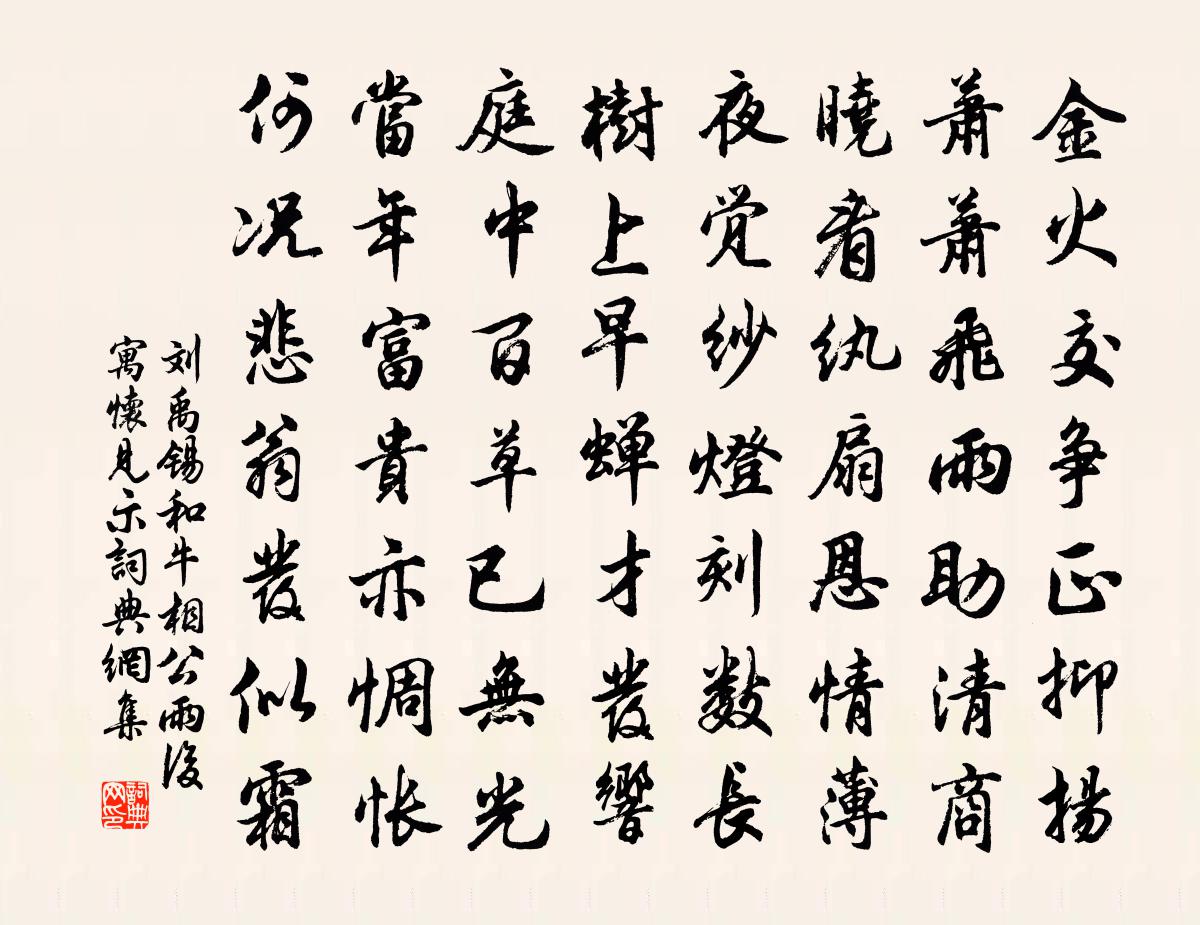 金火交争正抑揚
萧萧飛雨助清商
曉看紈扇恩情薄
夜觉紗燈刻数長
樹上早蝉才發響
庭中百草已無光
當年富貴亦惆悵
何况悲翁發似霜
刘禹锡和牛相公雨後
寓懷見示詞典網集
詞典
网印